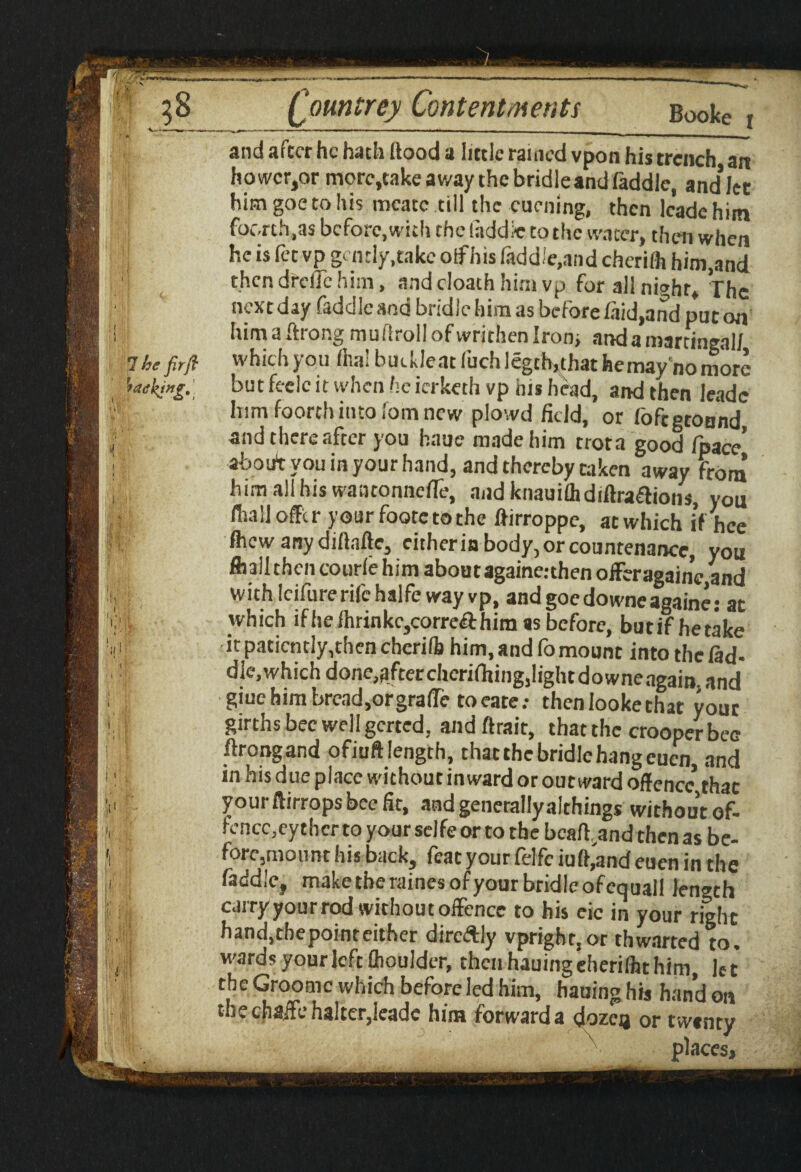 38 Countrey Contentments Booke 1
and after he hath ſtood a little rained vpon his trench, an
hower,or more,take away the bridle and ſaddle, and let
him goe to his meate till the euening, then leade him
foorth,as before,with the ſaddle to the water, then when
he is ſet vp gently,take off his ſaddle,and cheriſh him,and
then dreſſe him, and cloath him vp for all night. The
next day ſaddle and bridle him as before ſaid,and put on
him a ſtrong muſtroll of writhen Iron, and a martingall,
The firſt
backing.
which you ſhal buckle at ſuch lēgth,that he may no more
but feele it when he ierketh vp his head, and then leade
him foorth into ſom new plowd field, or ſoft ground,
and there after you haue made him trot a good ſpace,
about you in your hand, and thereby taken away from
him all his wantonneſſe, and knauiſh diſtractions, you
ſhall offer your foote to the ſtirroppe, at which if hee
ſhew any diſtaſte, either in body, or countenance, you
ſhall then courſe him about againe:then offer againe,and
with leiſure riſe halfe way vp, and goe downe againe: at
which if he ſhrinke,correct him as before, but if he take
it patiently,then cheriſh him, and ſo mount into the ſad-
dle,which done,after cheriſhing,light downe again, and
giue him bread,or graſſe to eate: then looke that your
girths bee well gerted, and ſtrait, that the crooper bee
ſtrong and of iuſt length, that the bridle hang euen, and
in his due place without inward or outward offence,that
your ſtirrops bee fit, and generally althings without of-
fence,eyther to your selfe or to the beaſt,and then as be-
fore,mount his back, ſeat your ſelfe iuſt,and euen in the
ſaddle, make the raines of your bridle of equall length
carry your rod without offence to his eie in your right
hand,the point either directly vpright, or thwarted to.
wards your left ſhoulder, then hauing cheriſht him, let
the Groome which before led him, hauing his hand on
the chaffe halter,leade him forward a dozen or twenty
places,